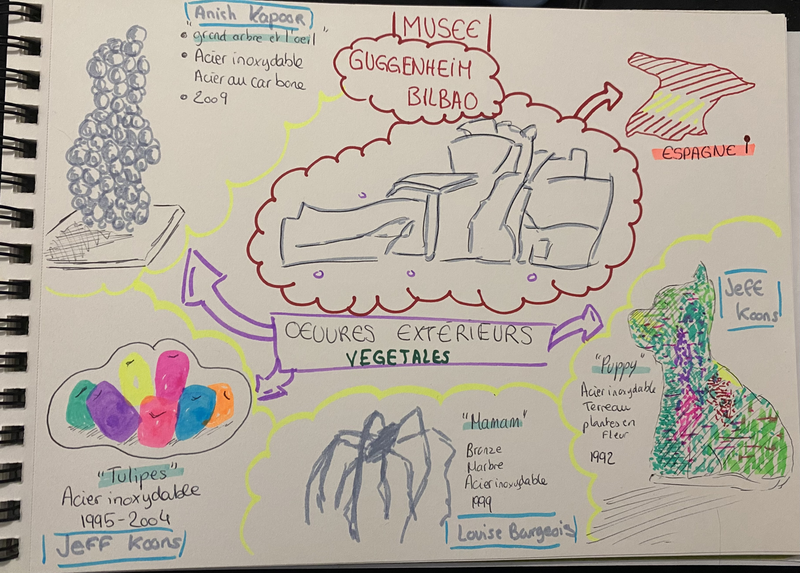 Anish Kapoor
"grand arbre et l'oeil"
• Acier inoxydable
Acier au carbone
• 2009
MUSEE
GUGGENHEIM
BILBAO
ESPAGNE
OEUVRES EXTÉRIEURS
VÉGÉTALES
"Tulipes"
Acier inoxydable
1995-2004
Jeff Koons
"Mamam"
Bronze
Marbre
Acier inoxydable
1999
Louise Bourgeois
Jeff
Koons
"Puppy"
Acier inoxydable
Terreau
plantes en
Fleur
1992